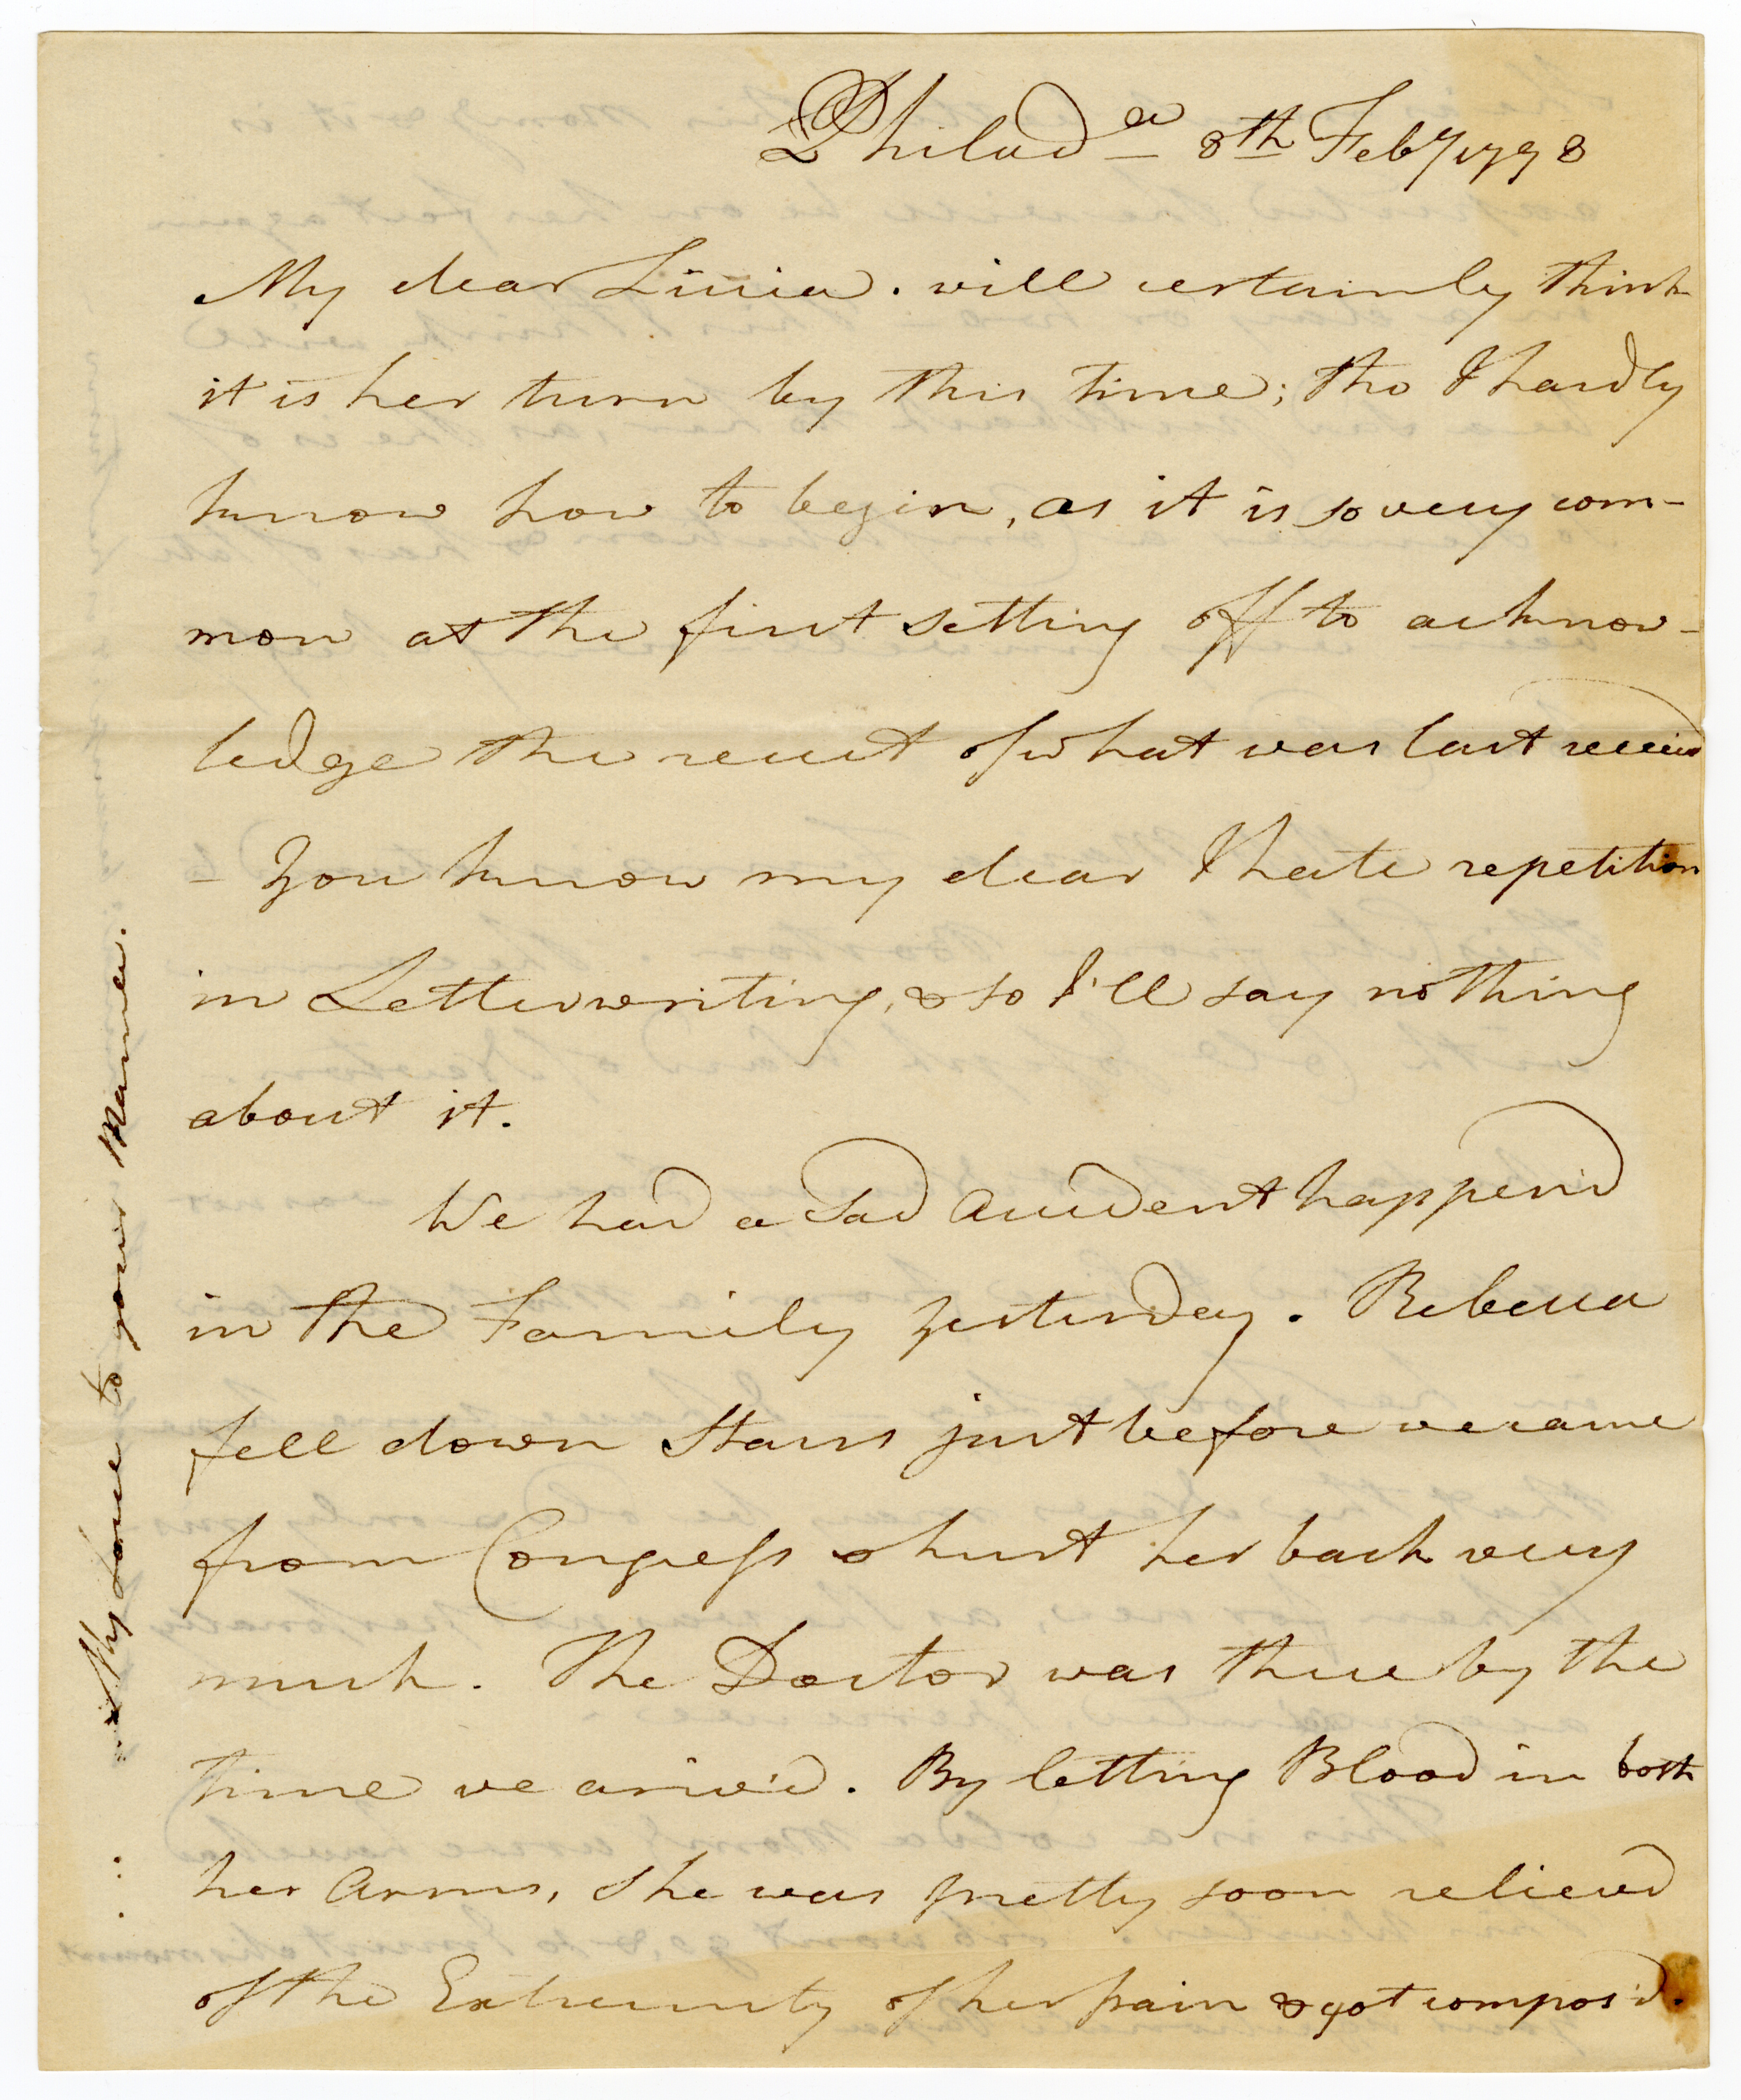 Philad.a 8th Feby 1798
My dear Livia. will certainly think
it is her turn by this time; tho I hardly
know how to begin, as it is so very com-
mon at the first setting off to acknow-
ledge the receit of what was last receivd
- You know my dear I hate repetition
in Letterwriting, & so I'll say nothing
about it.
We had a Sad accident happend
in the Family yesterday. Rebecca
fell down Stairs just before we came
from Congress & hurt her back very
much. The Doctor was there by the
time we ariv'd. By letting Blood in both
her Arms, she was pretty soon relievd
of the Extremity of her pain & got compos'd.
My Love to your Mama.